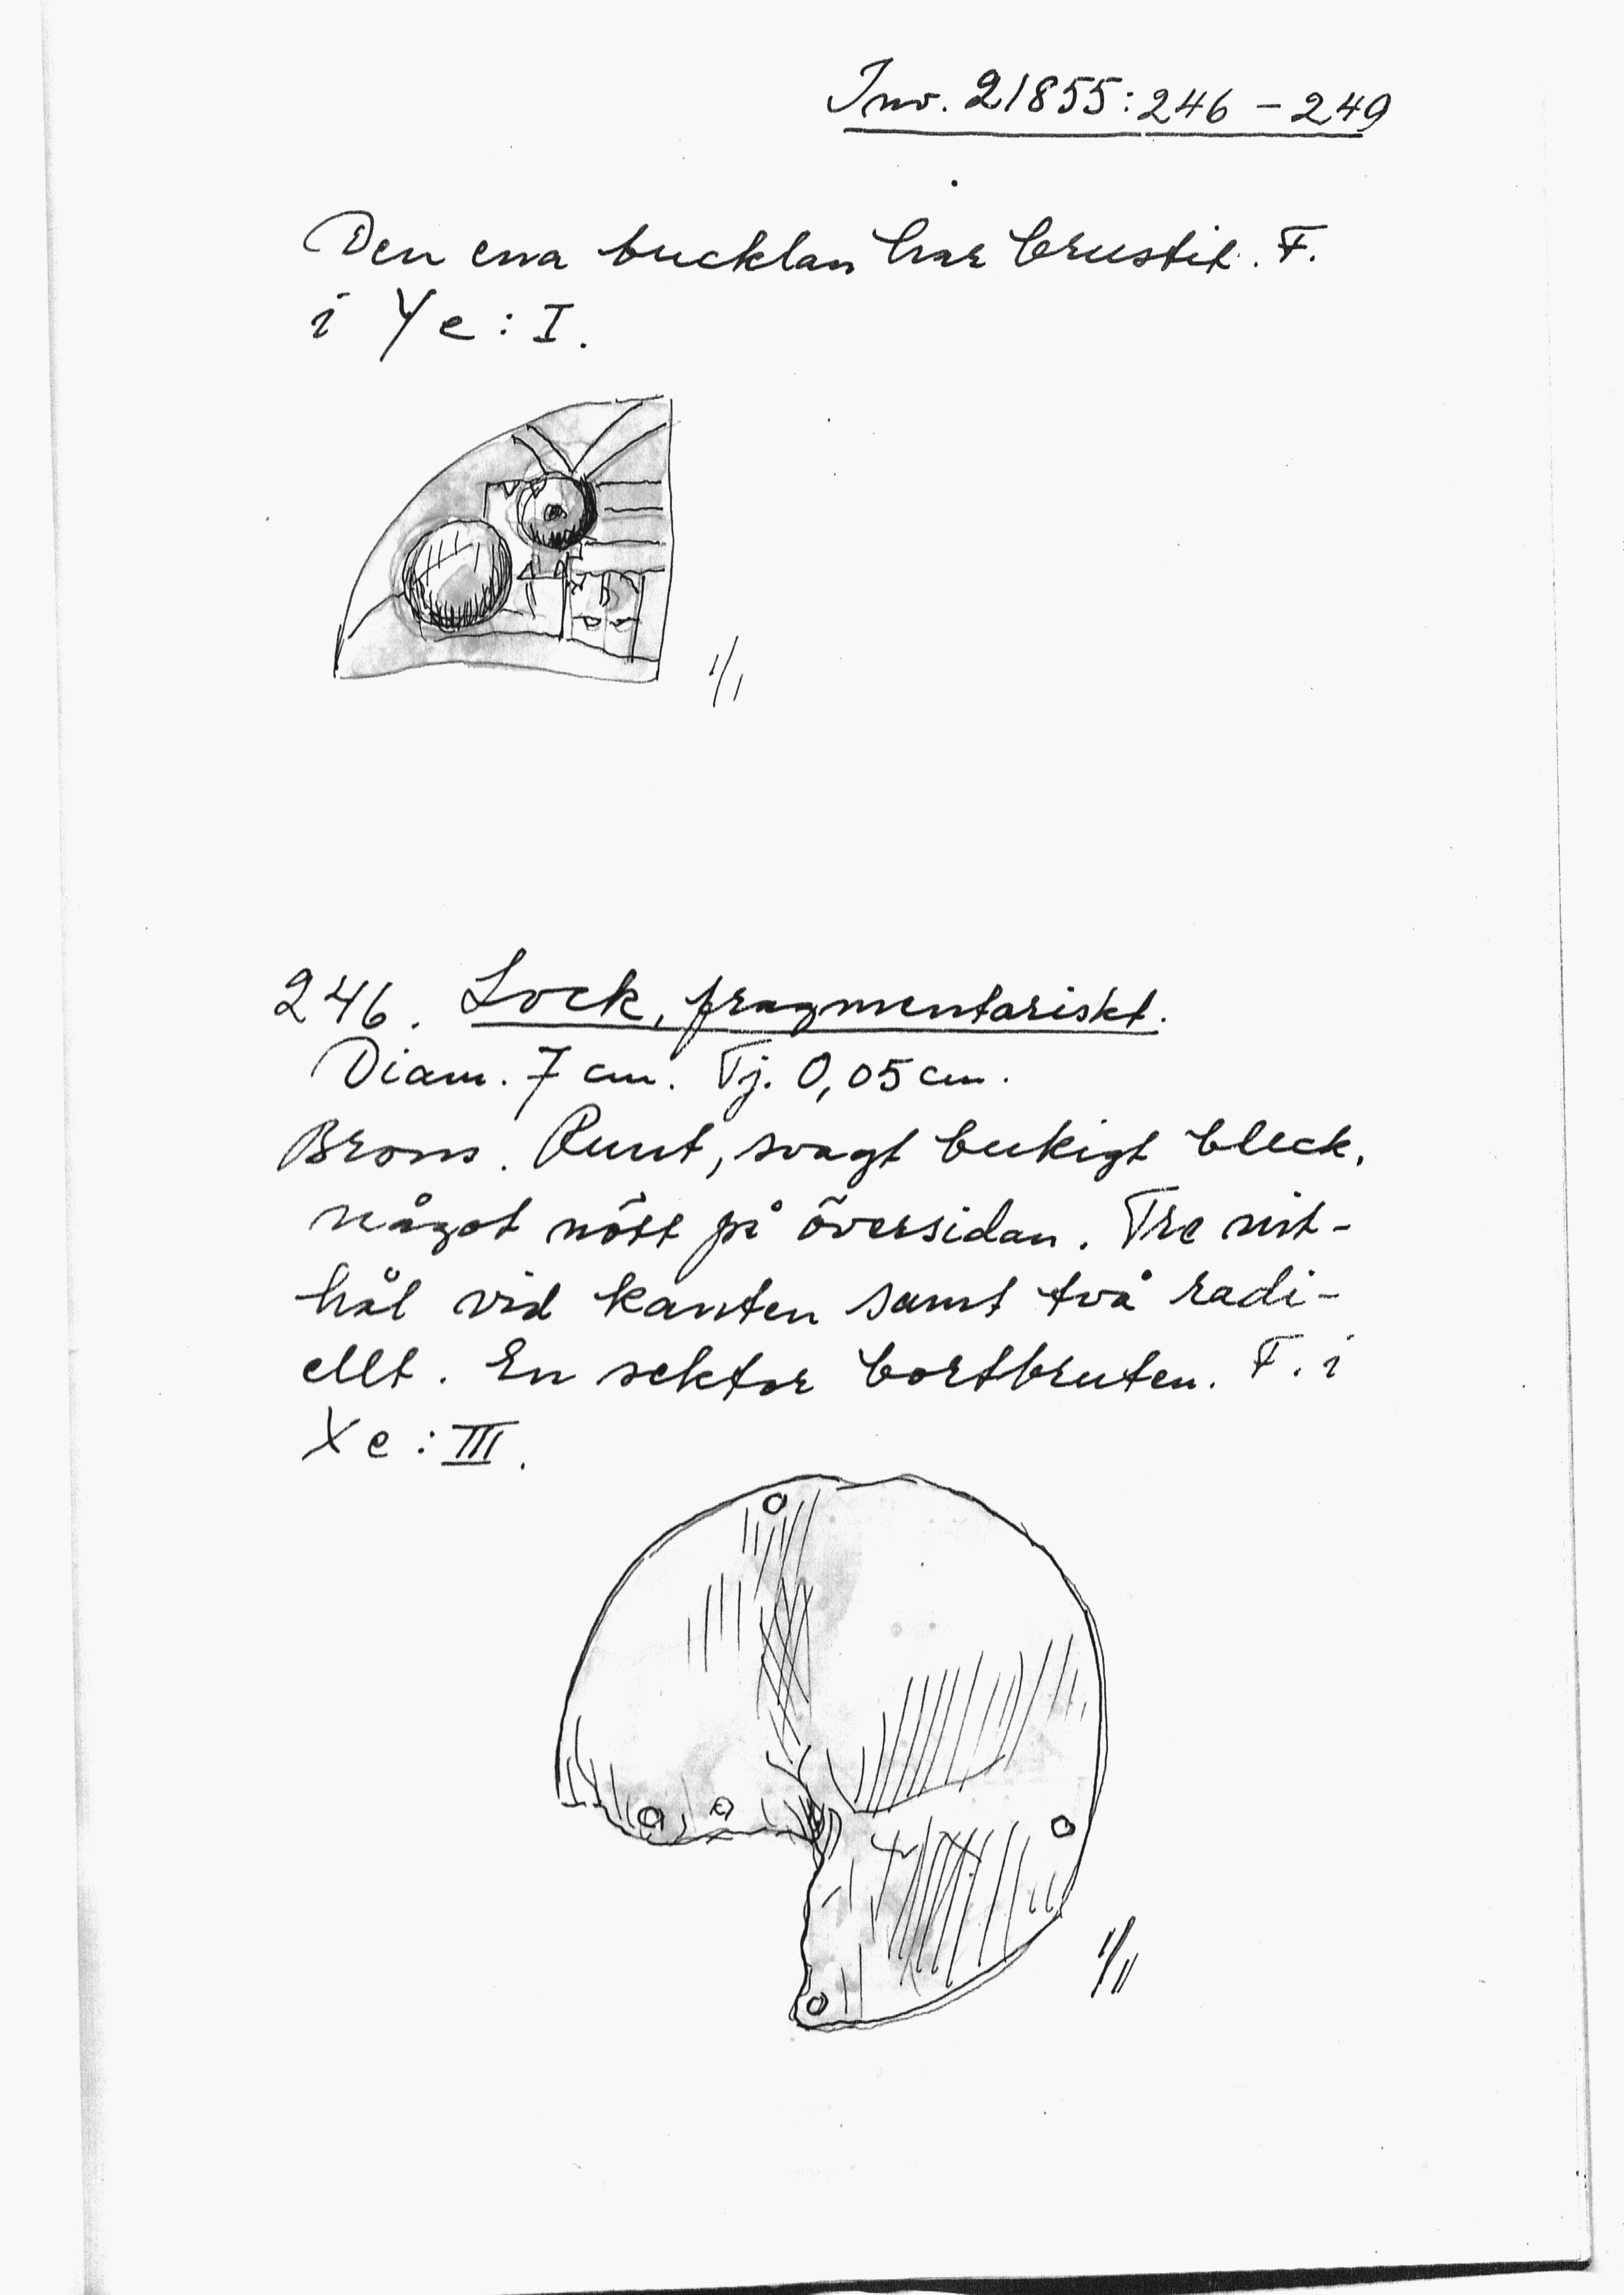 Inv. 21855:246 – 249
Den ena bucklan har brustit. F.
i Ye : I.
1/1
246. Lock, fragmentariskt.
Diam. 7 cm. Tj. 0,05 cm.
Brons. Runt, svagt bukigt bleck,
något nött på översidan. Tre nit-
hål vid kanten samt två radi-
ellt. En sektor bortbruten. F. i
Xe : III.
1/1